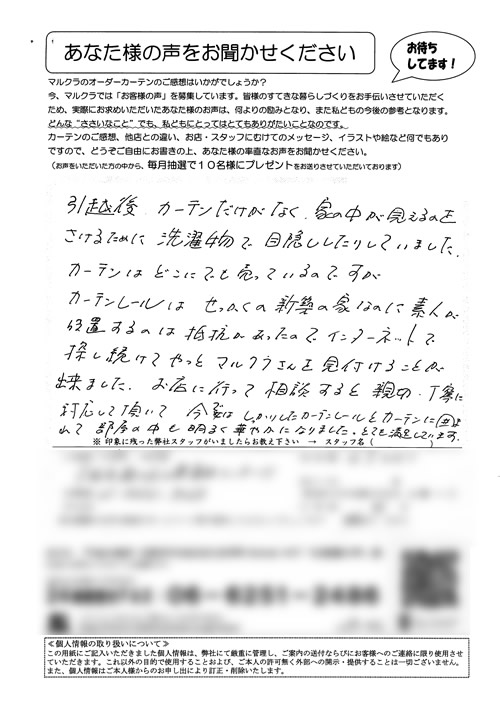 あなた様の声をお聞かせください
お待ち
してます!
マルクラのオーダーカーテンのご感想はいかがでしょうか?
今、マルクラでは「お客様の声」を募集しています。皆様のすてきな暮らしづくりをお手伝いさせていただく
ため、実際にお求めいただいたあなた様のお声は、何よりの励みとなり、また私どもの今後の参考となります。
どんな“ささいなこと”でも、私どもにとってはとてもありがたいことなのです。
カーテンのご感想、他店との違い、お店・スタッフにむけてのメッセージ、イラストや絵など何でもあり
ですので、どうぞご自由にお書きの上、あなた様の率直なお声をお聞かせください。
(お声をいただいた方の中から、毎月抽選で10名様にプレゼントをお送りさせていただいております)
引越後 カーテンだけがなく、家の中が見えるのを
さけるために 洗濯物で 目隠ししたりしていました。
カーテンは どこにでも売っているのですが
カーテンレールは せっかくの新築の家なのに 素人が
設置するのは 抵抗があったので インターネットで
探し続けて やっと マルクラさんを 見付けることが
出来ました。 お店に行って 相談すると 親切・丁寧に
対応して頂いて 今では しっかりしたカーテンレールとカーテンに囲ま
れて 部屋の中も 明るく華やかになりました。とても満足しています。
※ 印象に残った弊社スタッフがいましたらお教え下さい → スタッフ名( )
06-6251-2486
≪個人情報の取り扱いについて≫
この用紙にご記入いただきました個人情報は、弊社にて厳重に管理し、ご案内の送付ならびにお客様へのご連絡に限り使用させ
ていただきます。これ以外の目的で使用することおよび、ご本人の許可無く外部への開示・提供することは一切ございません。
また、個人情報はご本人様からのお申し出により訂正・削除いたします。